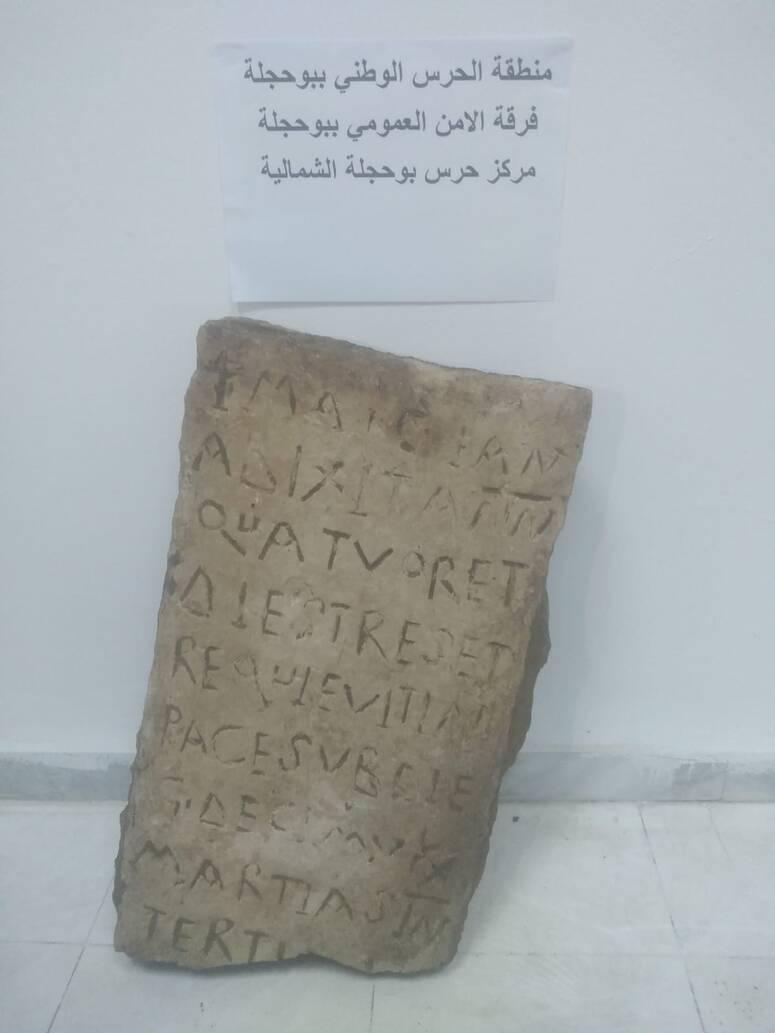 منطقة الحرس الوطني ببوحجلة
فرقة الامن العمومي ببوحجلة
مركز حرس بوحجلة الشمالية
ADIXITANN
QUATVORET
DIESTRESET
REQUIEVITIN
PACESVB
MARTIASIN